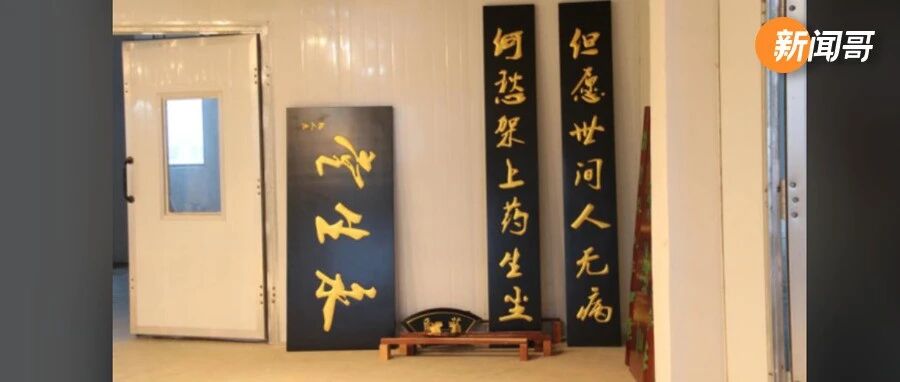 新闻哥
但愿世间人无病
何愁架上药生尘
堂生